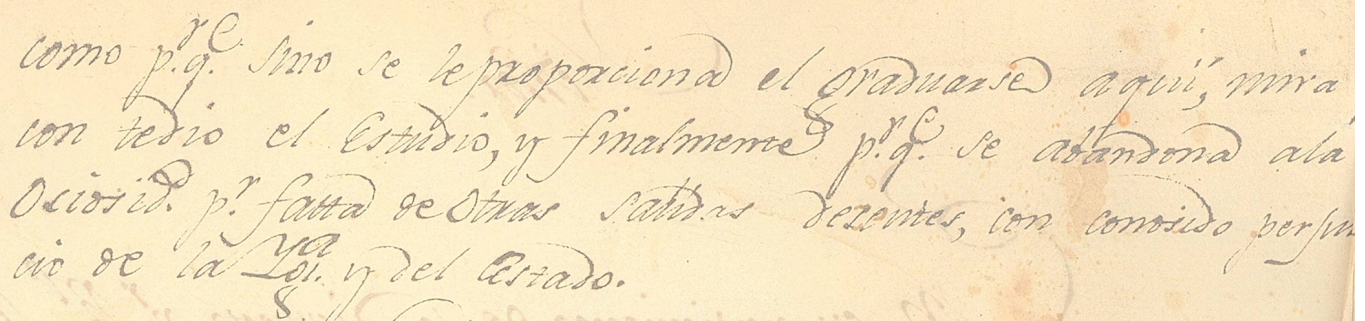 como p.r q.e sino se le proporciona el graduarse aqui, mira
con tedio el Estudio, y finalmente p.r q.e se abandona ala
Ociosid.d p.r falta de Otras salidas desentes, con conosido perjui
cio de la Ygl.a y del Estado.